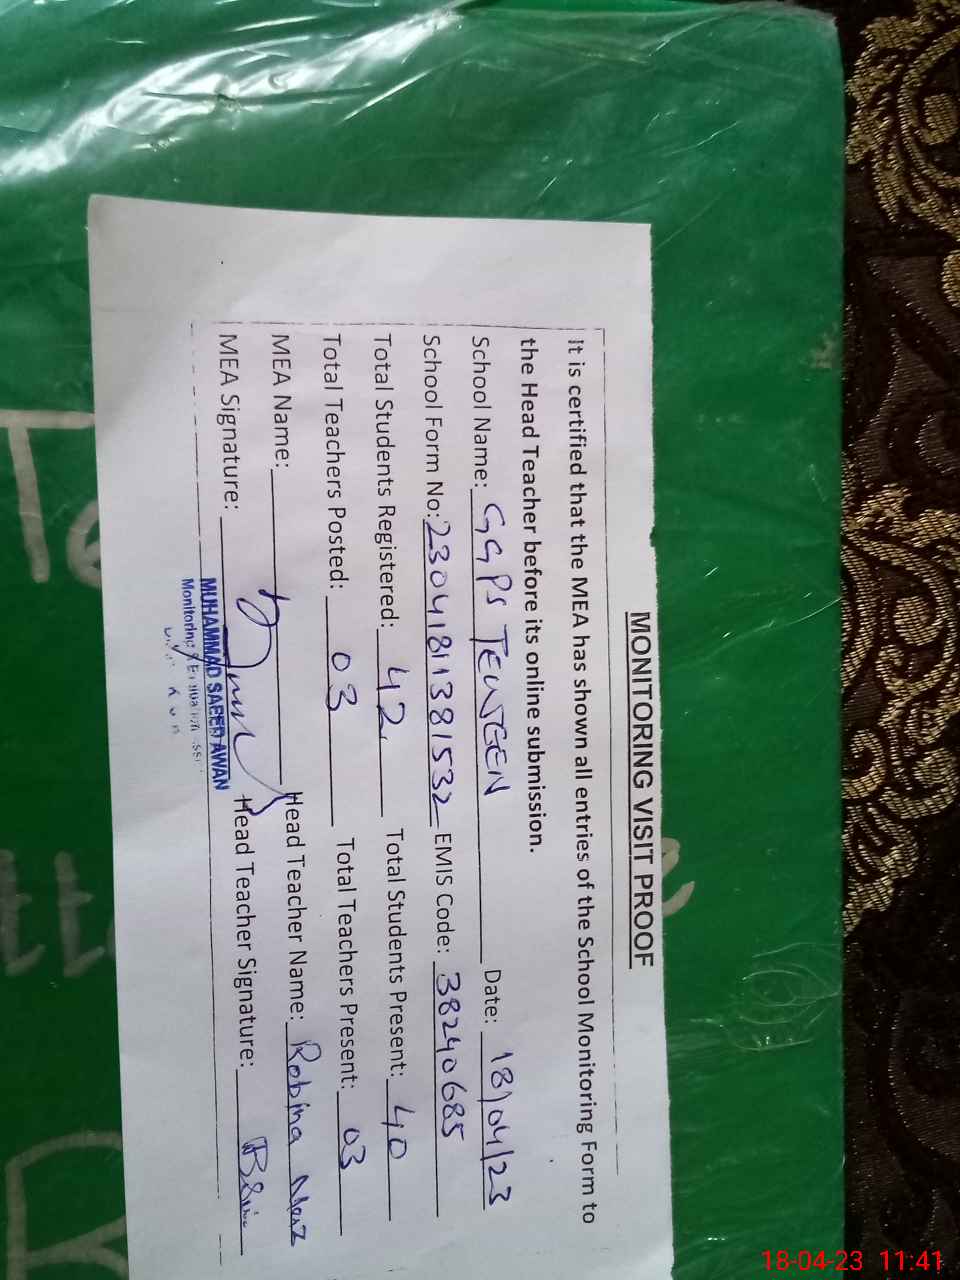 MONITORING VISIT PROOF
It is certified that the MEA has shown all entries of the School Monitoring Form to
the Head Teacher before its online submission.
School Name: GGPS TEWGEN Date: 18/04/23
School Form No: 23041811381532 EMIS Code: 38240685
Total Students Registered: 42 Total Students Present: 40
Total Teachers Posted: 03 Total Teachers Present: 03
MEA Name: Head Teacher Name: Robina
MEA Signature: Head Teacher Signature:
MUHAMMAD SAEED AWAN
Monitoring
18-04-23 11:41